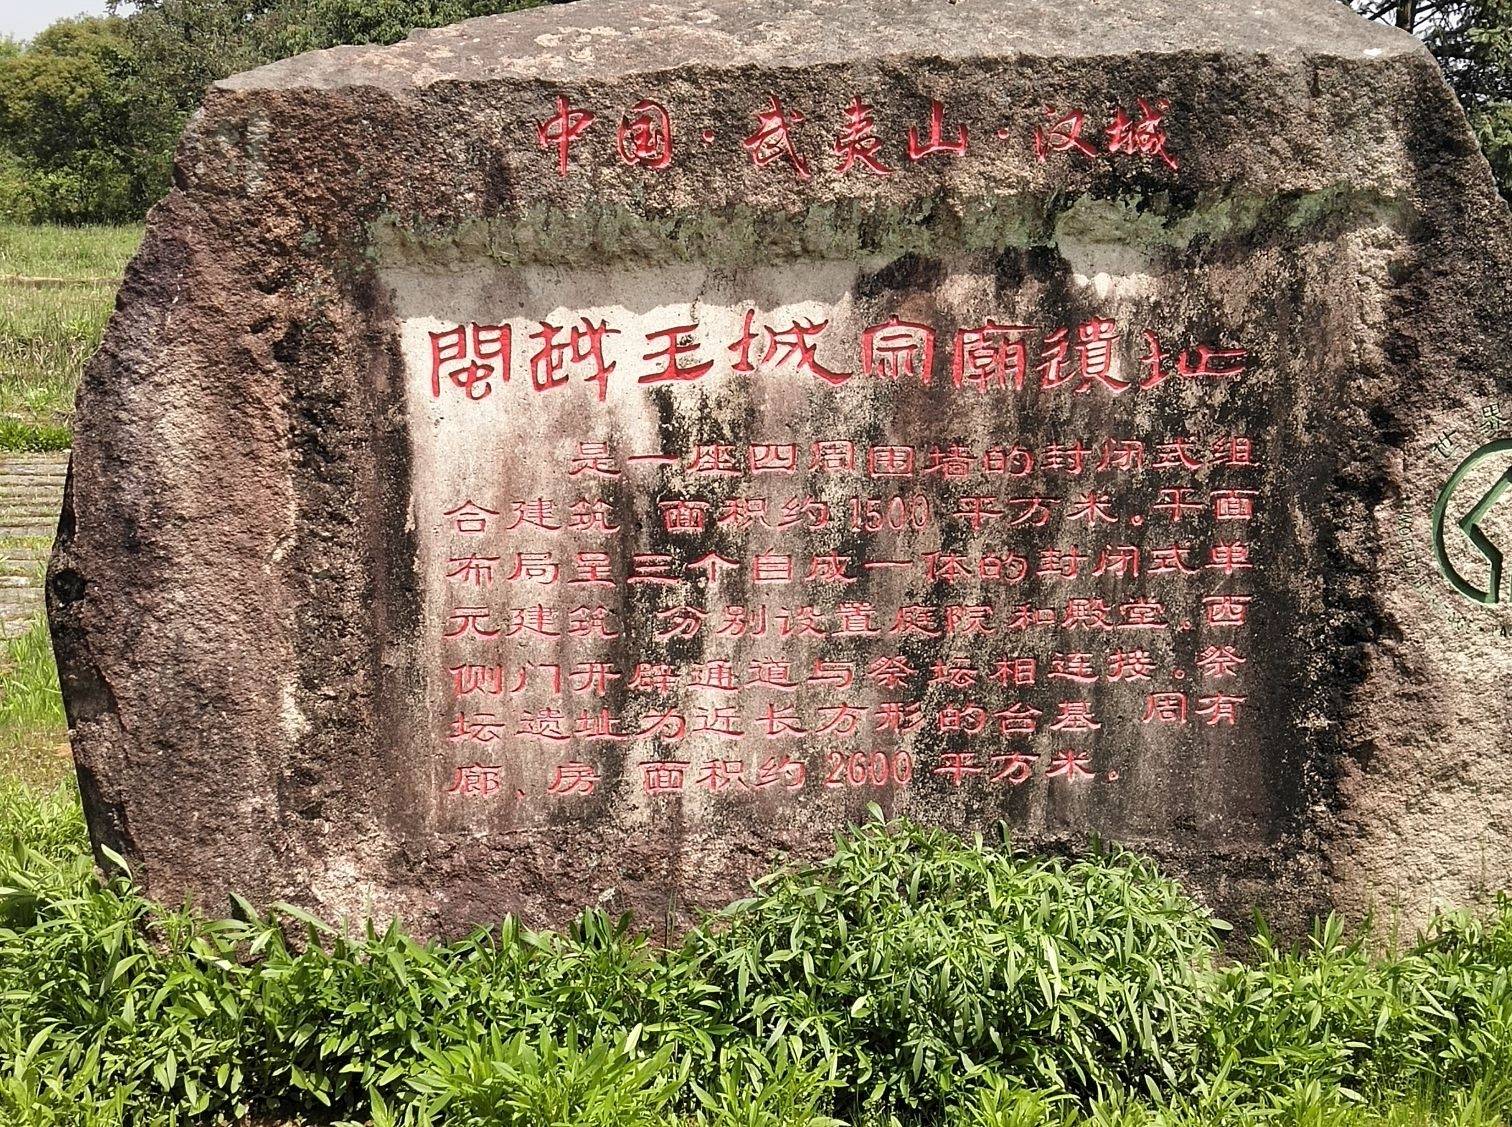 中国·武夷山·汉城
閩越王城宗廟遺址
是一座四周围墙的封闭式组
合建筑 面积约1500平方米。平面
布局呈三个自成一体的封闭式单
元建筑 分别设置庭院和殿堂.西
侧门开辟通道与祭坛相连接。祭
坛遗址为近长方形的台基 周有
廊、房 面积约2600平方米.
世界